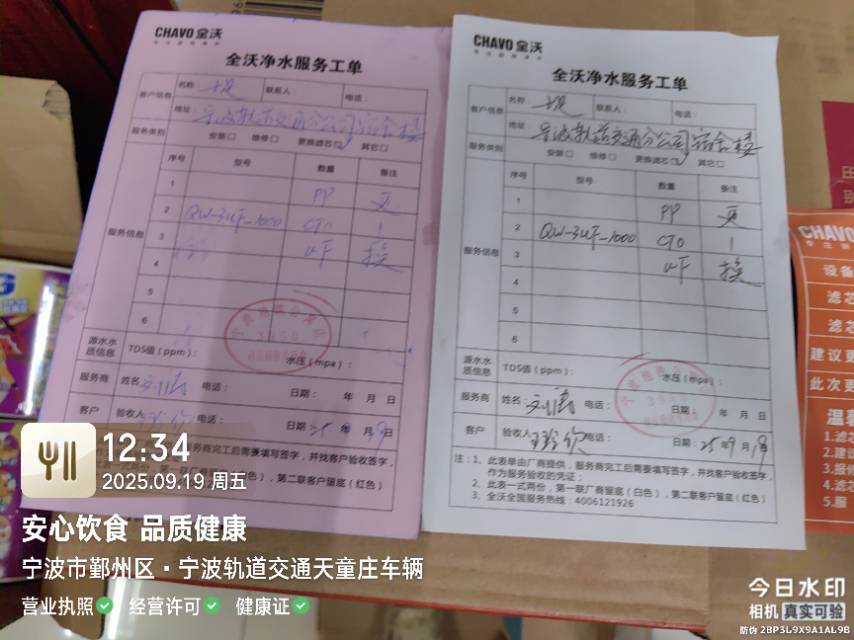 CHAVO 全沃
全沃净水服务工单
客户信息
名称：
联系人：
电话：
地址：
宁波轨道交通分公司宿舍楼
服务类别
安装□ 维修□ 更换滤芯☑ 其它□
服务信息
序号 型号 数量 备注
1 PP 更
2 QW-3UF-1000 CTO 1
3 UF 换
4
5
6
源水水质信息
TDS值（ppm）： 水压（mpa）：
服务商
姓名： 电话： 日期： 年 月 日
客户
验收人 电话： 日期：25年 月19日
服务商完工后需要填写签字，并找客户验收签字，
第一联厂商留底（白色），第二联客户留底（红色）
CHAVO 全沃
全沃净水服务工单
客户信息
名称：
联系人：
电话：
地址：
宁波轨道交通分公司宿舍楼
服务类别
安装□ 维修□ 更换滤芯☑ 其它□
服务信息
序号 型号 数量 备注
1 PP 更
2 QW-3UF-1000 CTO 1
3 UF 换
4
5
6
源水水质信息
TDS值（ppm）： 水压（mpa）：
服务商
姓名： 电话： 日期： 年 月 日
客户
验收人 电话： 日期：25年9月19日
注：1、此表单由厂商提供，服务商完工后需要填写签字，并找客户验收签字，
作为服务验收的凭证；
2、此表一式两份，第一联厂商留底（白色），第二联客户留底（红色）
3、全沃全国服务热线：4006121926
CHAVO
设备
滤芯
滤芯
建议更
此次更
温馨
1.滤芯
2.建议
3.报修
4.滤芯
5.服
12:34
2025.09.19 周五
安心饮食 品质健康
宁波市鄞州区·宁波轨道交通天童庄车辆
营业执照 经营许可 健康证
今日水印
相机 真实可验
防伪 2BP3L9X9A1AL9B